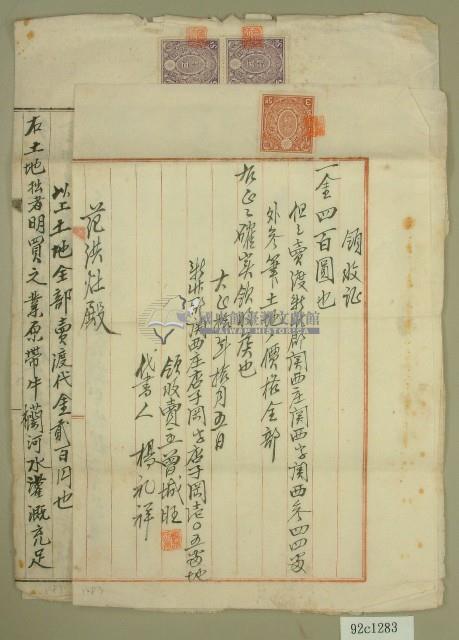 領收証
一金四百圓也
但シ賣渡新竹郡関西庄関西字関西参四四番
外参筆土地ノ價格全部
右正ニ確実領收候也
大正拾年拾月五日
関西庄店子岡字店子岡壱〇五番地
領收賣主曾城旺
代書人 楊礼祥
范洪灶殿
以上土地全部賣渡代金貳百円也
右土地拙者明買之業原帶牛欄河水灌溉充足
國史館臺灣文獻館
TAIWAN HISTORICA
92c1283